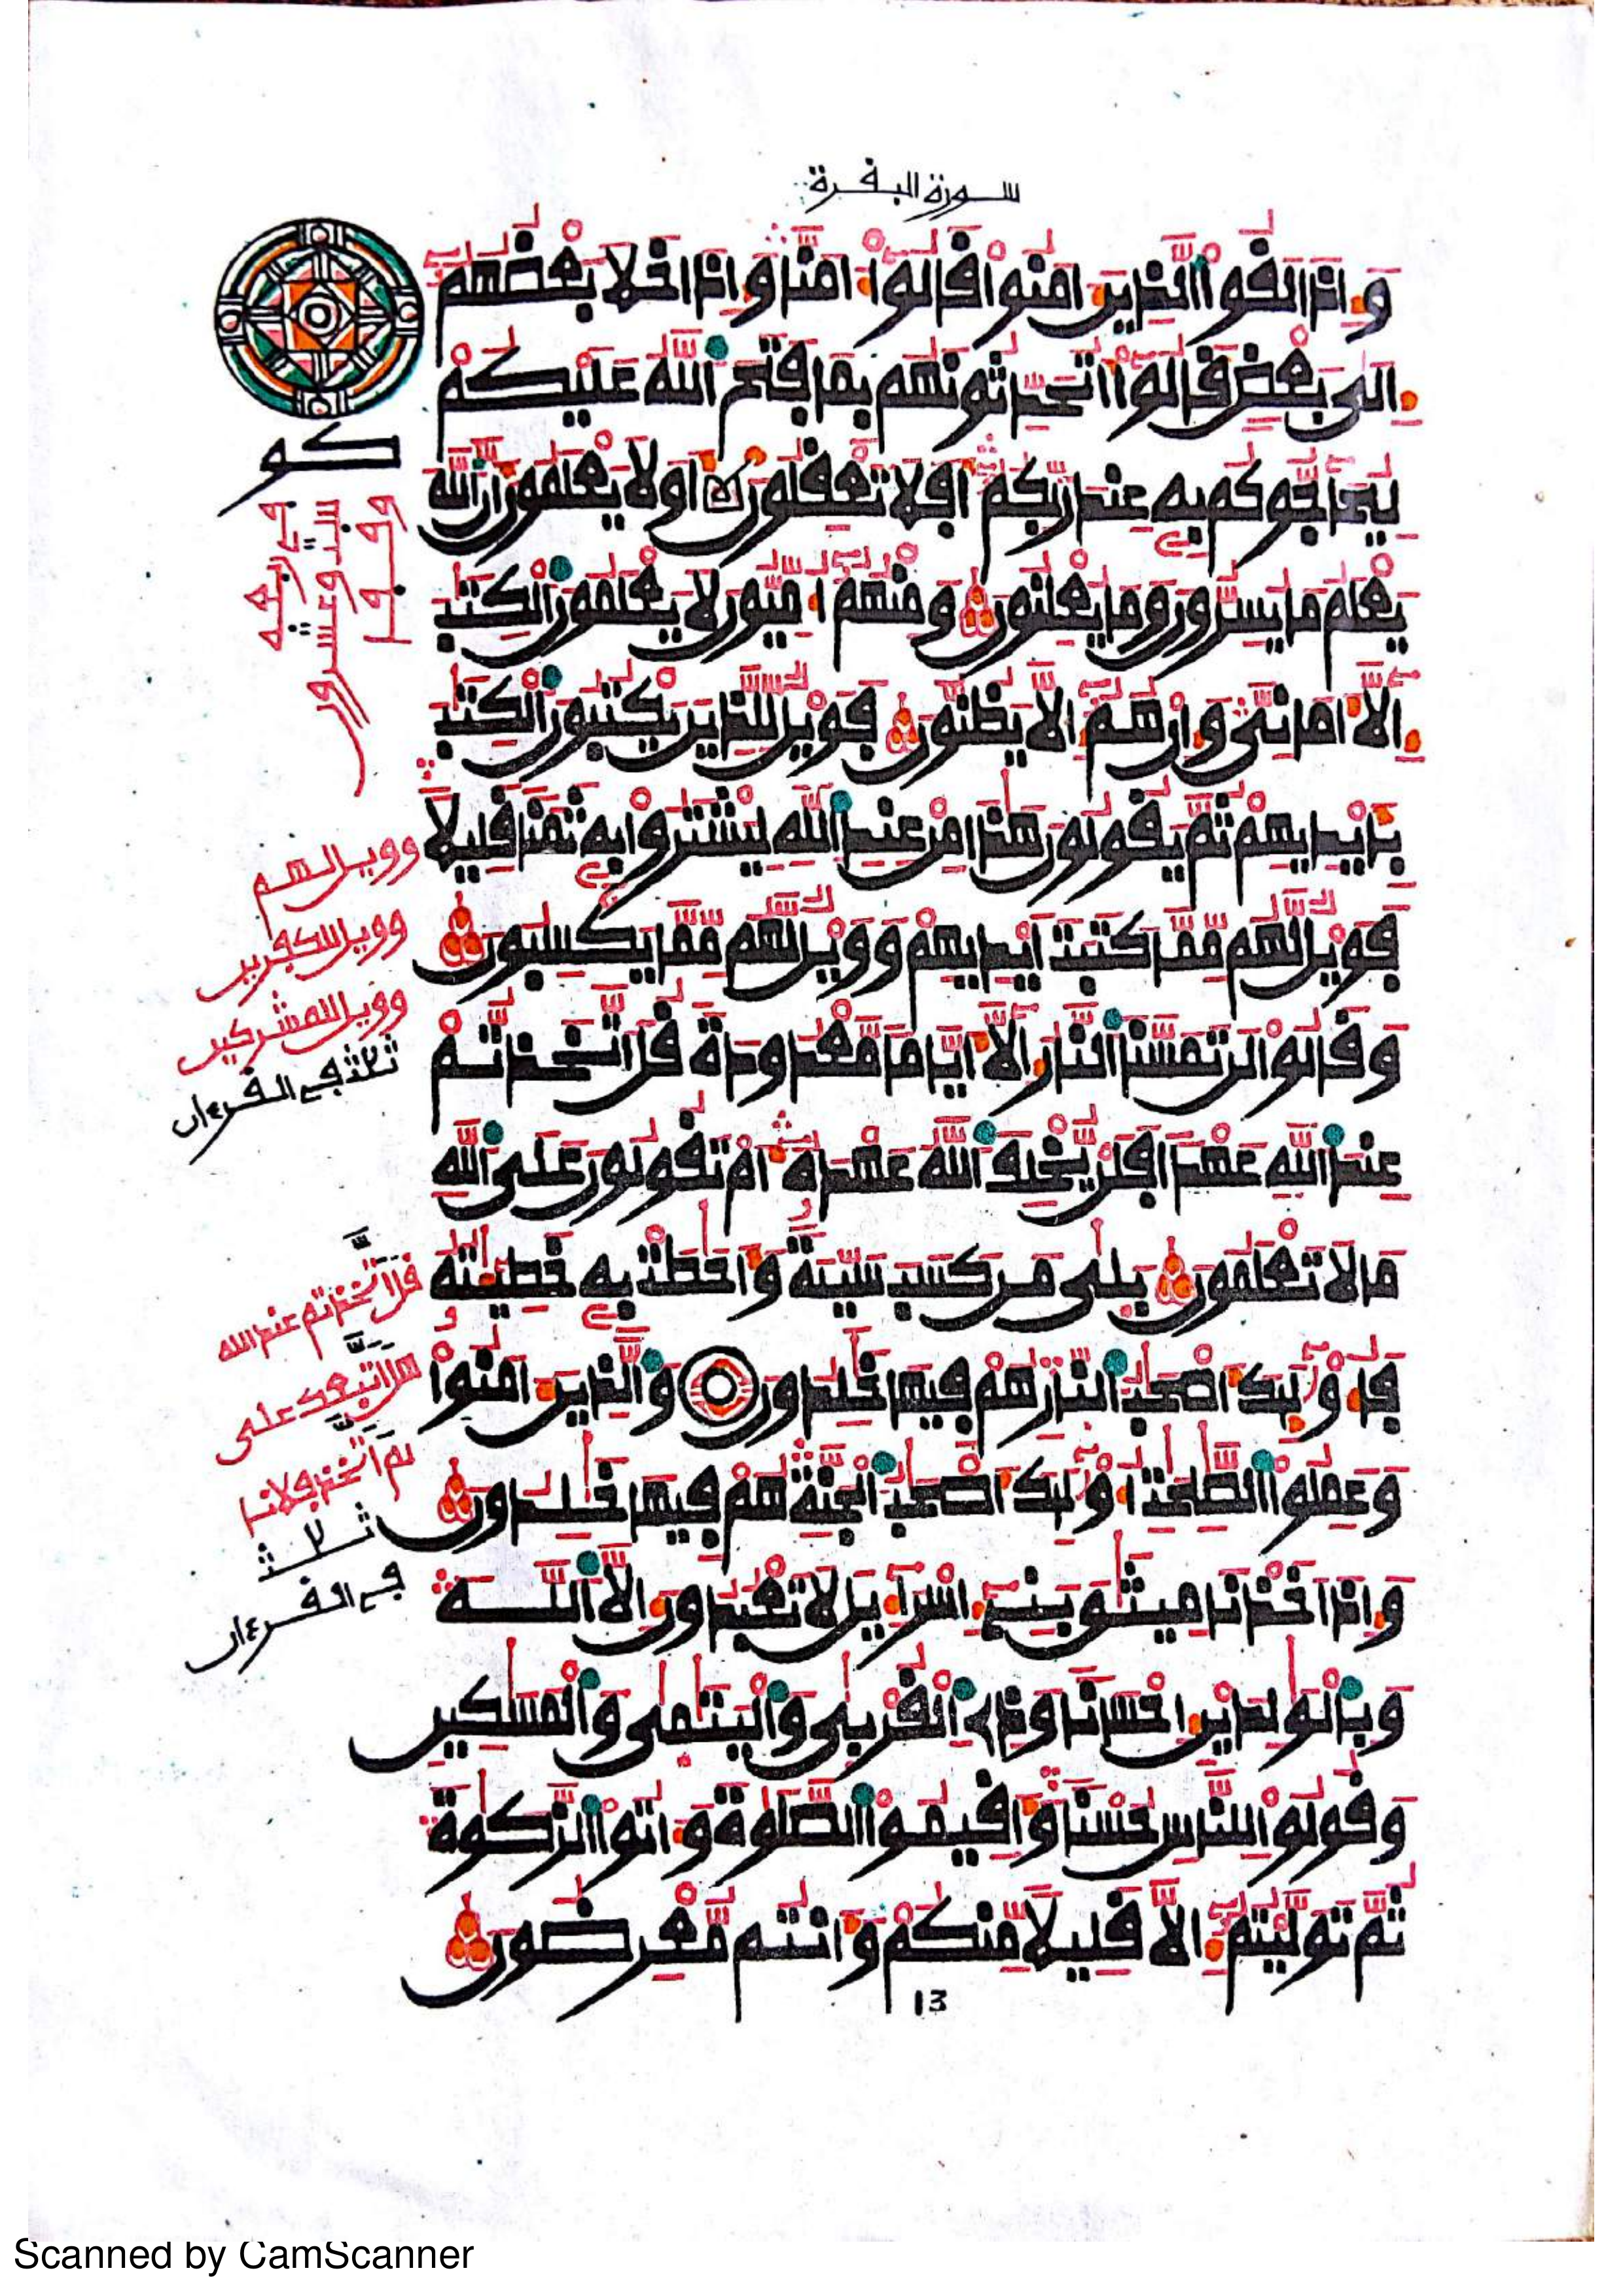 سورة البفرة
وإذا لفوا الذين امنوا فالوا امنا وإذا خلا بعضهم
إلى بعض فالوا اتحدثونهم بما فتح الله عليكم
ليحاجوكم به عند ربكم افلا تعفلون اولا يعلمون ان الله
يعلم ما يسرون وما يعلنون ومنهم اميون لا يعلمون الكتب
إلا اماني وإن هم إلا يظنون فويل للذين يكتبون الكتب
بايديهم ثم يفولون هذا من عند الله ليشتروا به ثمنا فليلا
فويل لهم مما كتبت ايديهم وويل لهم مما يكسبون
وفالوا لن تمسنا النار إلا اياما معدودة فل اتخذتم
عند الله عهدا فلن يخلف الله عهده ام تفولون على الله
ما لا تعلمون بلى من كسب سيية واحطت به خطيئته
فأولئك اصحب النار هم فيها خلدون والذين امنوا
وعملوا الصلحت أولئك اصحب الجنة هم فيها خلدون
وإذ اخذنا ميثق بني إسرآءيل لا تعبدون إلا الله
وبالولدين إحسانا وذي الفربى واليتمى والمسكين
وفولوا للناس حسنا وافيموا الصلوة وءاتوا الزكوة
ثم توليتم إلا فليلا منكم وانتم معرضون
13
كو
وفرا
في اربعة
وويل لهم
وويل للكفرين
وويل للمشركين
ثلاث في الفرءان
فل اتخذتم عند الله
هل اتبعك على
لم اتخذ فلانا
ثلاث
في الفرءان
Scanned by CamScanner